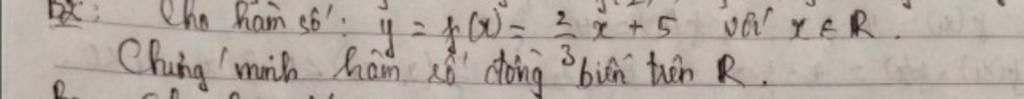 Bài: Cho hàm số: y = f(x) = 2/3 x + 5 với x ∈ R.
Chứng minh hàm số đồng biến trên R.